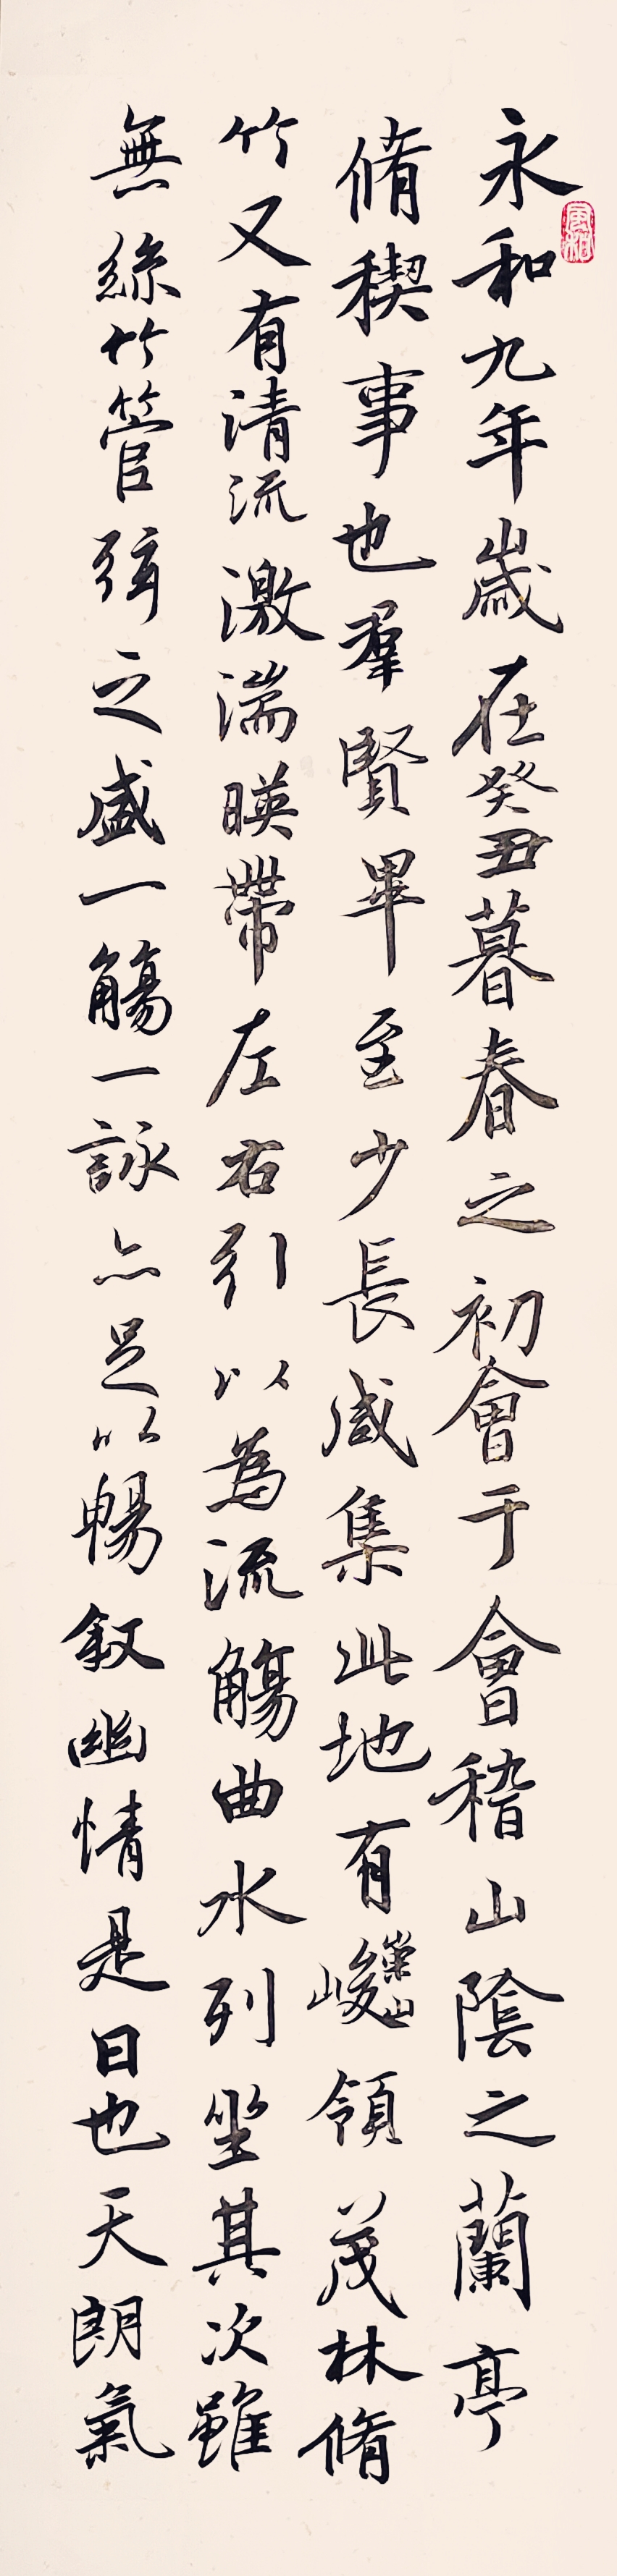 永和九年歲在癸丑暮春之初會于會稽山陰之蘭亭
脩稧事也羣賢畢至少長咸集此地有崇山峻領茂林脩
竹又有清流激湍暎帶左右引以為流觴曲水列坐其次雖
無絲竹管弦之盛一觴一詠亦足以暢敘幽情是日也天朗氣